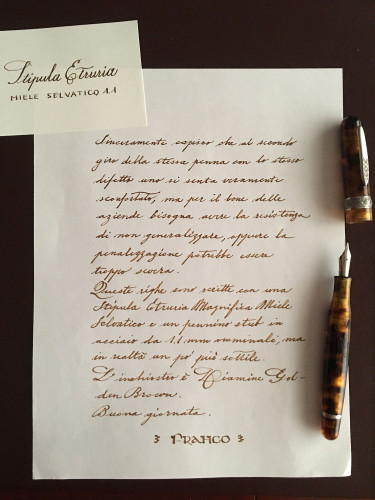 Stipula Etruria
MIELE SELVATICO 1.1
Sinceramente capisco che al secondo
giro della stessa penna con lo stesso
difetto uno si senta veramente
sconfortato, ma per il bene delle
aziende bisogna avere la resistenza
di non generalizzare, oppure la
penalizzazione potrebbe essere
troppo severa.
Queste righe sono scritte con una
Stipula Etruria Magnifica Miele
Selvatico e un pennino stub in
acciaio da 1.1 mm nominali, ma
in realtà un po' più sottile.
L'inchiostro è Diamine Gol-
den Brown.
Buona giornata.